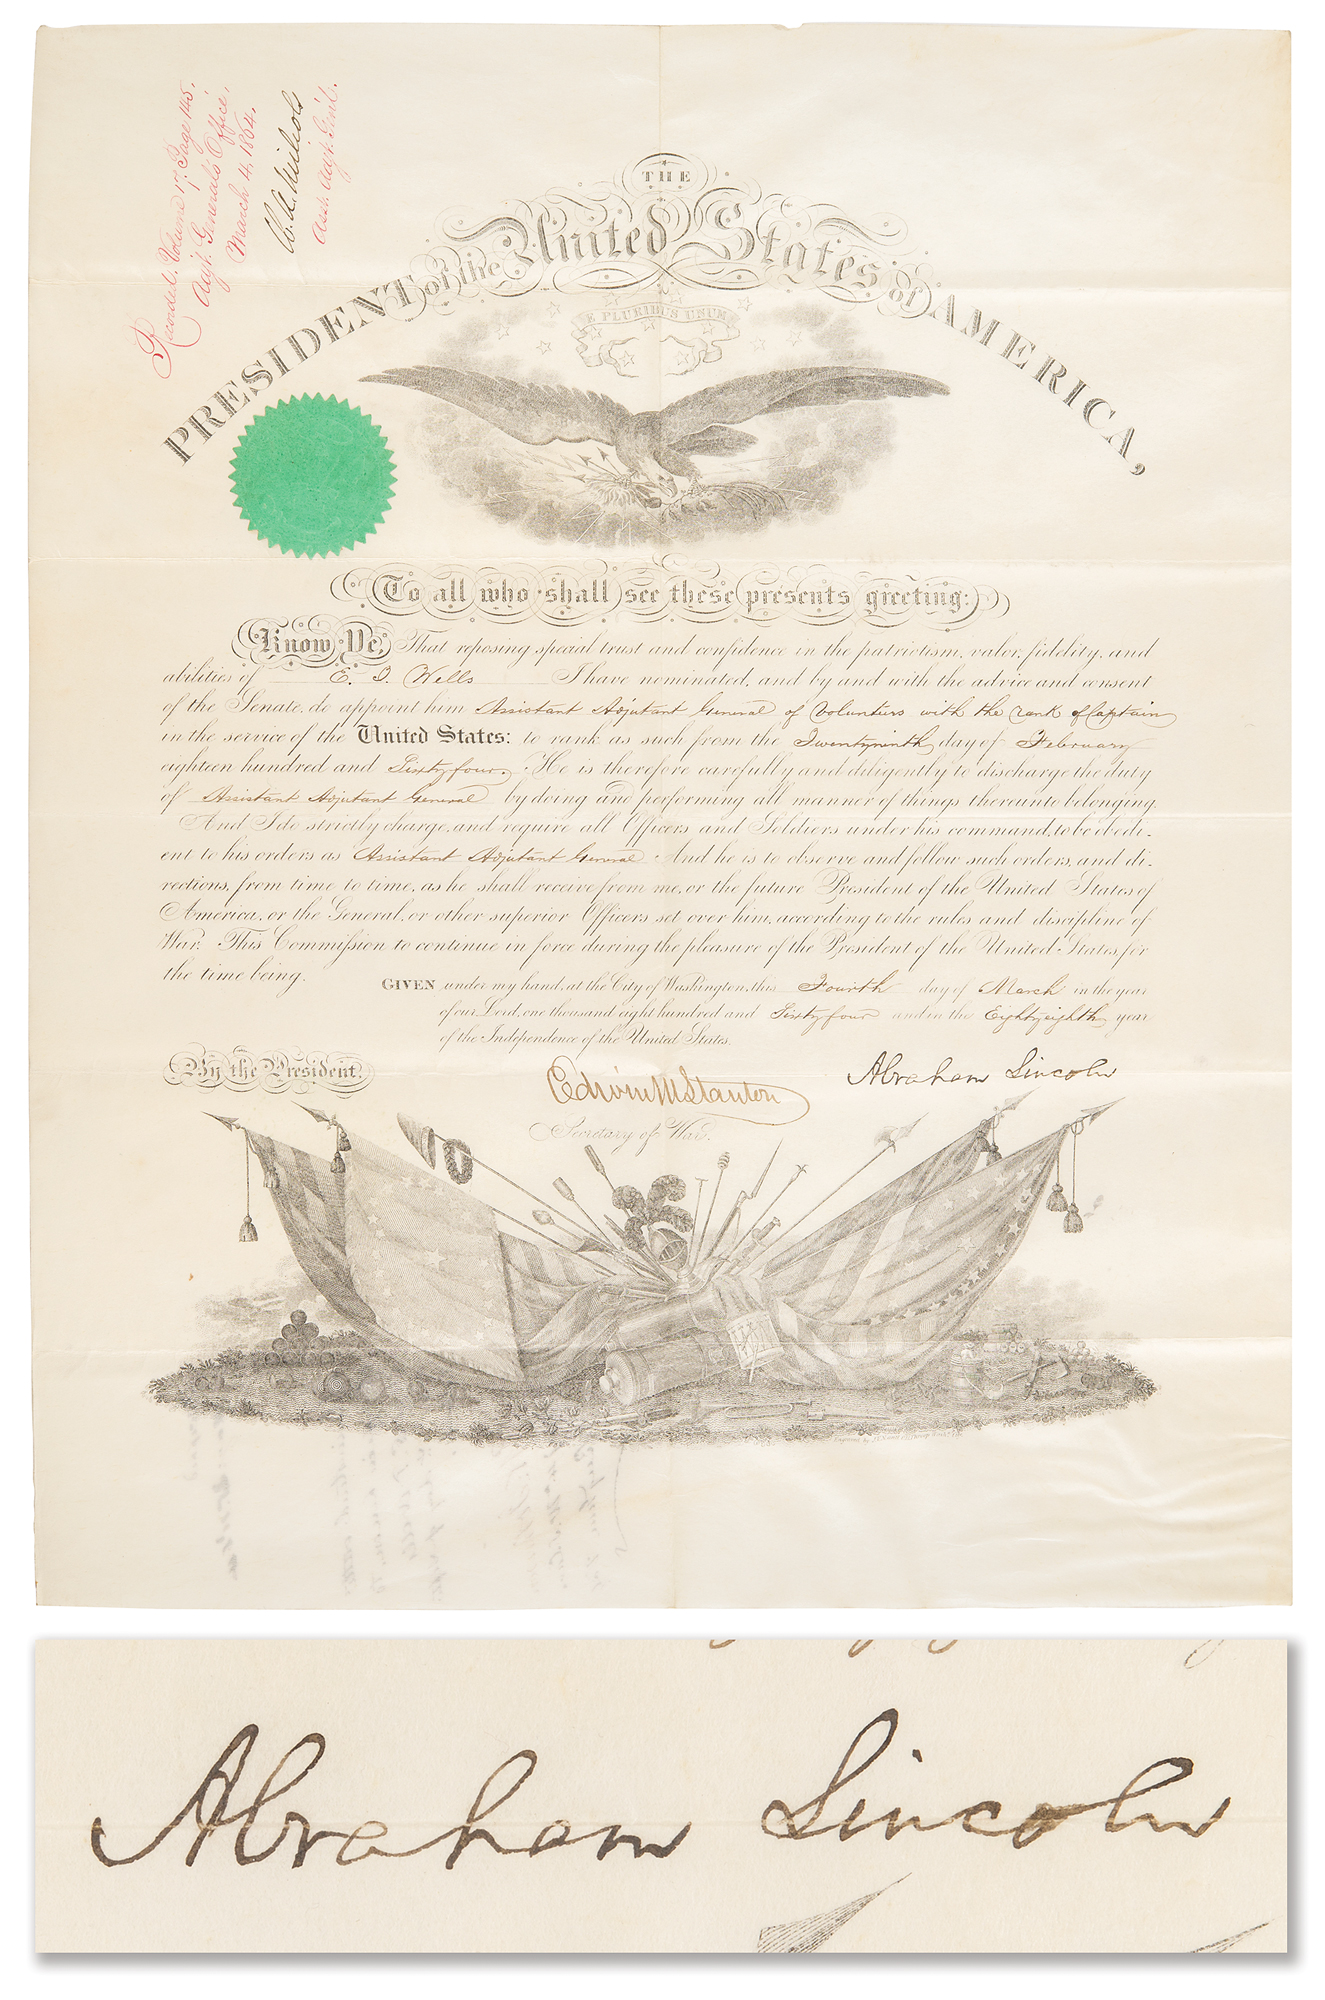 Recorded. Volume 17. Page 145.
Adj't. General's Office.
March 4, 1864.
W. A. Nichols
Asst. Adjt. Genl.
THE
PRESIDENT of the United States of AMERICA,
E PLURIBUS UNUM
To all who shall see these presents greeting:
Know Ye, That reposing special trust and confidence in the patriotism, valor, fidelity, and
abilities of E. I. Wells I have nominated, and by and with the advice and consent
of the Senate, do appoint him Assistant Adjutant General of Volunteers with the rank of Captain
in the service of the United States: to rank as such from the Twentyninth day of February
eighteen hundred and Sixty four. He is therefore carefully and diligently to discharge the duty
of Assistant Adjutant General by doing and performing all manner of things thereunto belonging.
And I do strictly charge, and require all Officers and Soldiers under his command, to be obedi-
ent to his orders as Assistant Adjutant General. And he is to observe and follow such orders, and di-
rections, from time to time, as he shall receive from me, or the future President of the United States of
America, or the General, or other superior Officers set over him, according to the rules and discipline of
War. This Commission to continue in force during the pleasure of the President of the United States, for
the time being.
GIVEN under my hand, at the City of Washington, this Fourth day of March in the year
of our Lord, one thousand eight hundred and Sixty four and in the Eighty eighth year
of the Independence of the United States.
By the President,
Abraham Lincoln
Edwin M Stanton
Secretary of War.
Abraham Lincoln